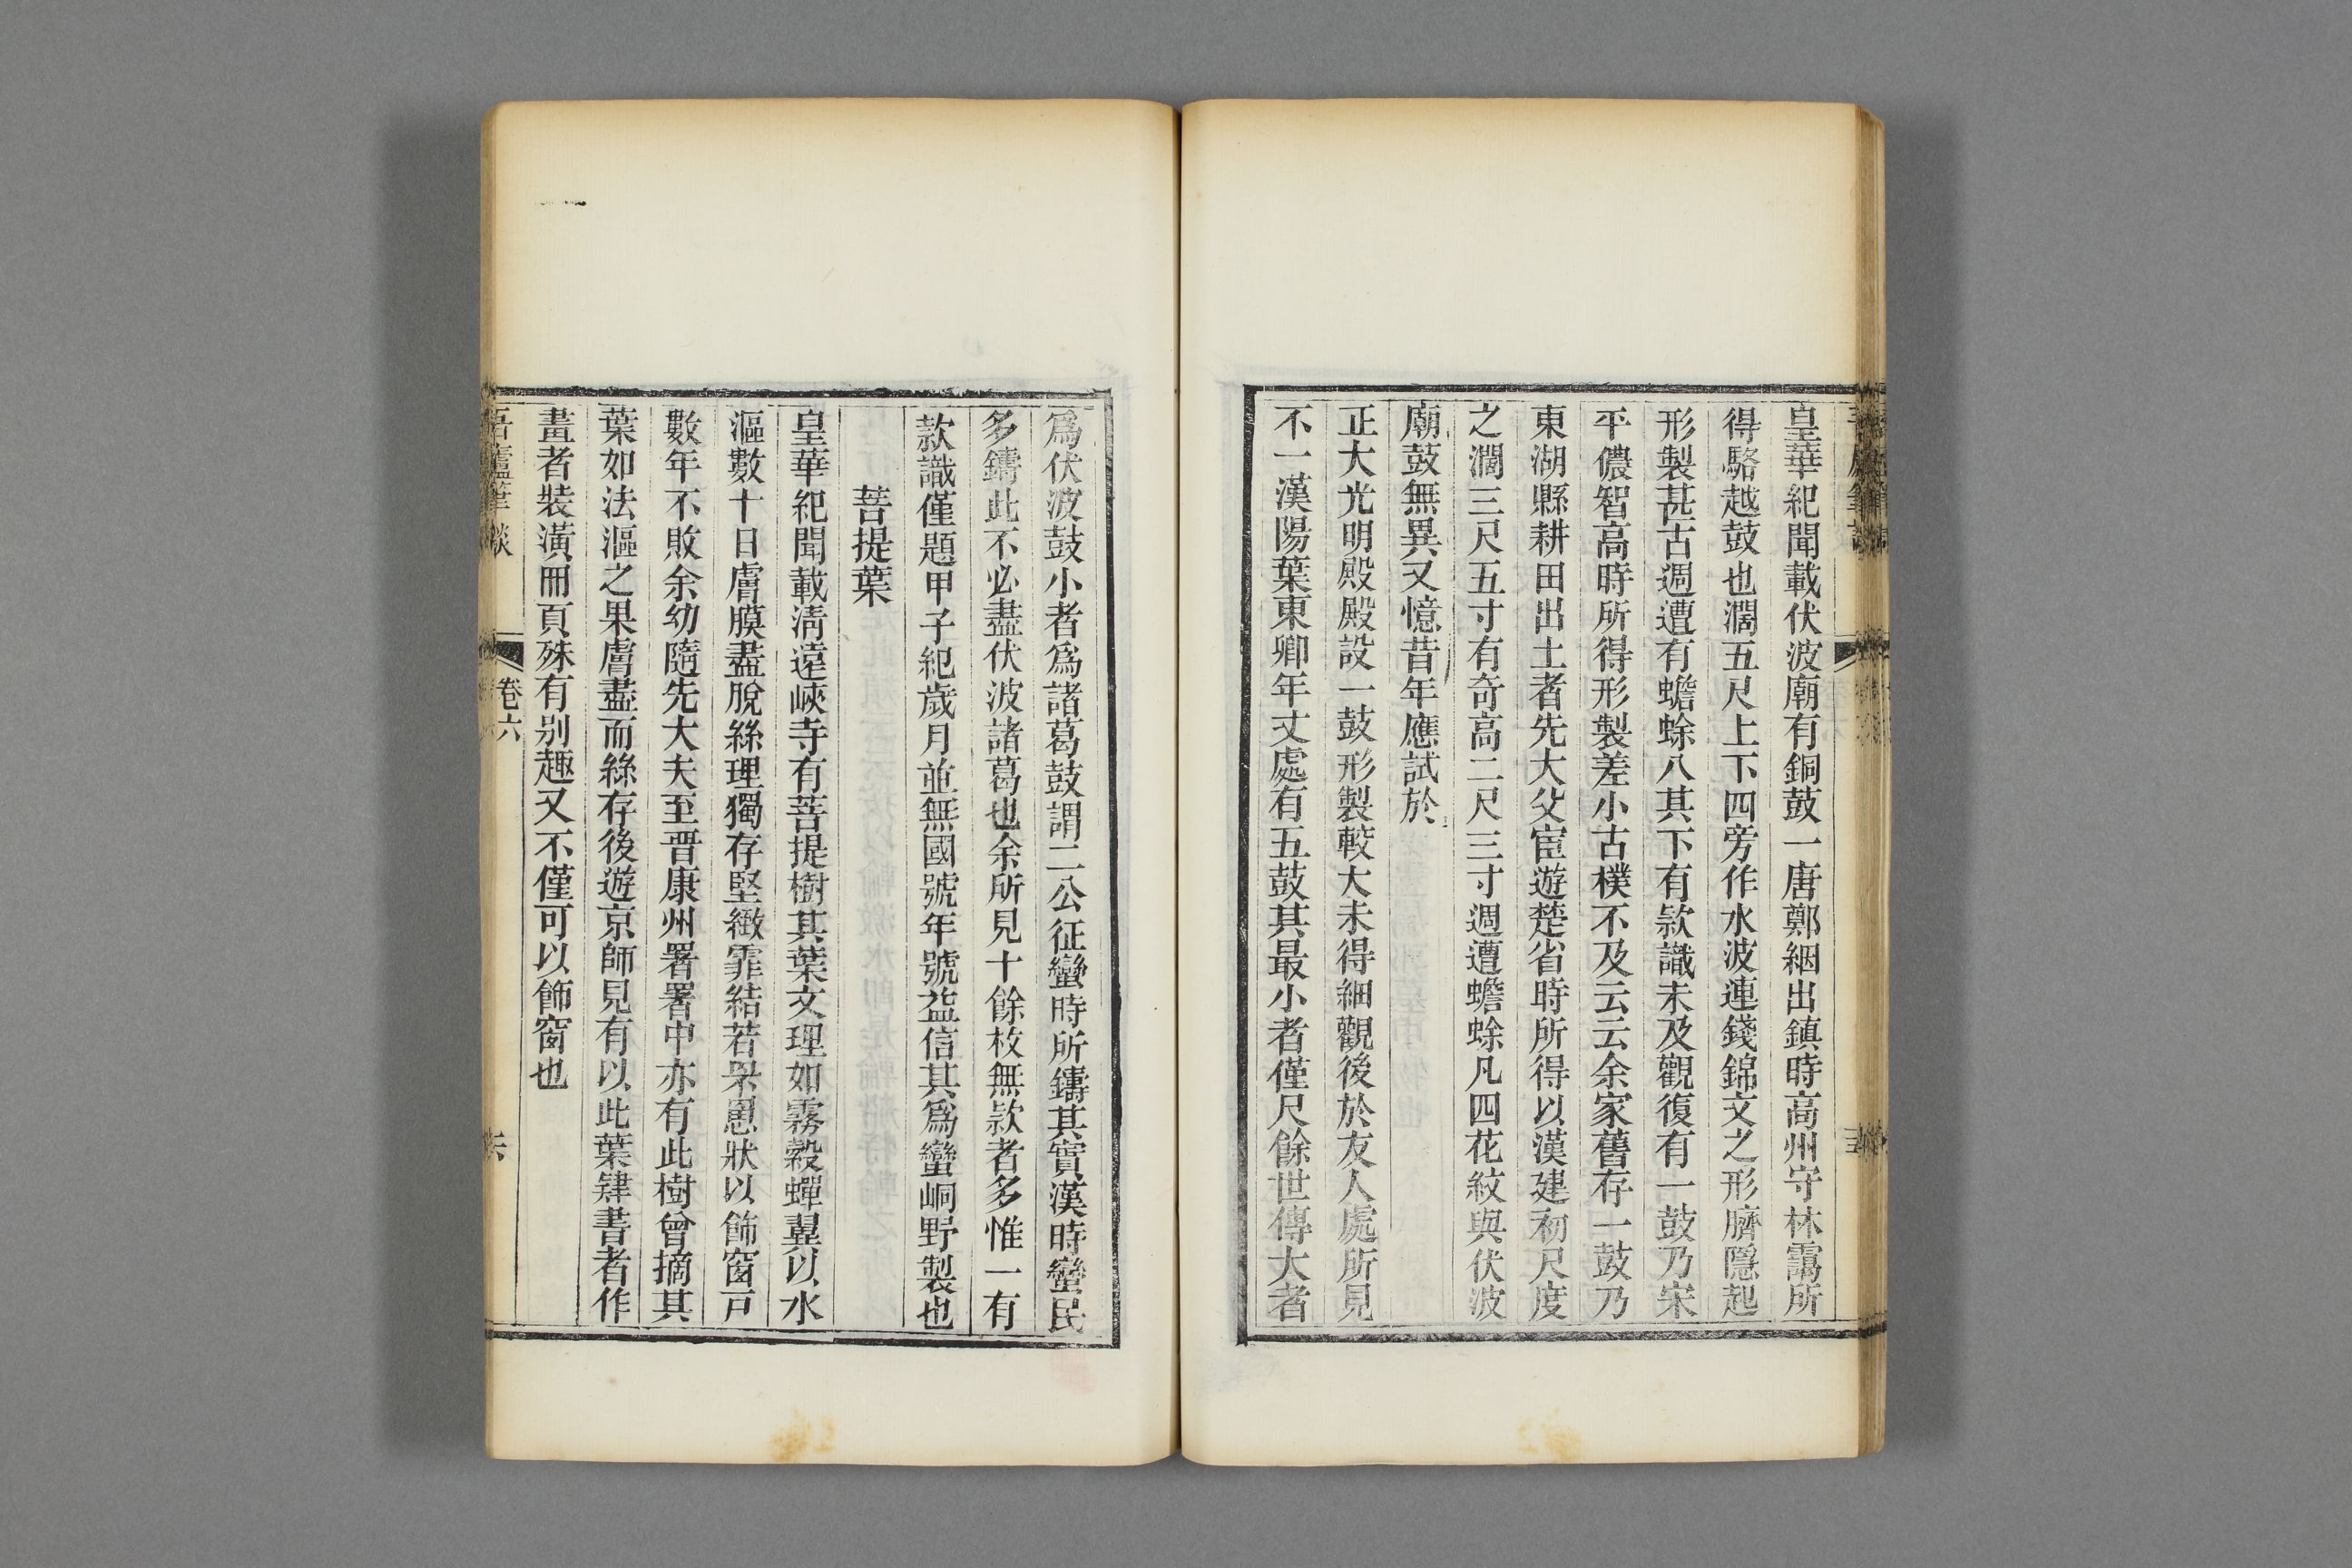 皇華紀聞載伏波廟有銅鼓一唐鄭絪出鎮時高州守林靄所
得駱越鼓也濶五尺上下四旁作水波連錢錦文之形臍隱起
形製甚古週遭有蟾蜍八其下有款識未及觀復有一鼓乃宋
平儂智高時所得形製差小古樸不及云云余家舊存一鼓乃
東湖縣耕田出土者先大父宦遊楚省時所得以漢建初尺度
之濶三尺五寸有奇高二尺三寸週遭蟾蜍凡四花紋與伏波
廟鼓無異又憶昔年應試於
正大光明殿殿設一鼓形製較大未得細觀後於友人處所見
不一漢陽葉東卿年丈處有五鼓其最小者僅尺餘世傳大者
爲伏波鼓小者爲諸葛鼓謂二公征蠻時所鑄其實漢時蠻民
多鑄此不必盡伏波諸葛也余所見十餘枚無款者多惟一有
款識僅題甲子紀歲月並無國號年號益信其爲蠻峒野製也
菩提葉
皇華紀聞載淸遠峽寺有菩提樹其葉文理如霧縠蟬翼以水
漚數十日膚膜盡脫絲理獨存堅緻霏結若罘罳狀以飾窗戸
數年不敗余幼隨先大夫至晋康州署署中亦有此樹曾摘其
葉如法漚之果膚盡而絲存後遊京師見有以此葉肄書者作
畫者裝潢冊頁殊有别趣又不僅可以飾窗也
吾廬筆談
卷六